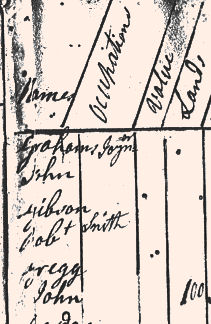 Names
Occupations
Value
Land,
Grahams Joyner
John
Gibson
Robt Smith
Gregg
John
100